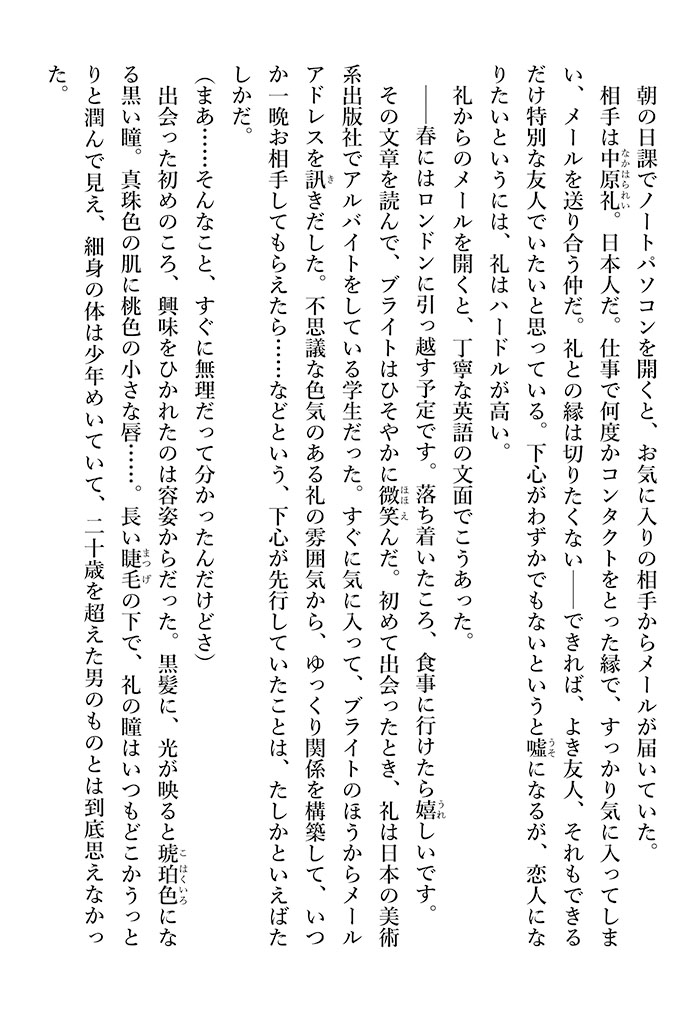 朝の日課でノートパソコンを開くと、お気に入りの相手からメールが届いていた。
相手は中原礼。日本人だ。仕事で何度かコンタクトをとった縁で、すっかり気に入ってしま
い、メールを送り合う仲だ。礼との縁は切りたくない――できれば、よき友人、それもできる
だけ特別な友人でいたいと思っている。下心がわずかでもないというと嘘になるが、恋人にな
りたいというには、礼はハードルが高い。
礼からのメールを開くと、丁寧な英語の文面でこうあった。
――春にはロンドンに引っ越す予定です。落ち着いたころ、食事に行けたら嬉しいです。
その文章を読んで、ブライトはひそやかに微笑んだ。初めて出会ったとき、礼は日本の美術
系出版社でアルバイトをしている学生だった。すぐに気に入って、ブライトのほうからメール
アドレスを訊きだした。不思議な色気のある礼の雰囲気から、ゆっくり関係を構築して、いつ
か一晩お相手してもらえたら……などという、下心が先行していたことは、たしかといえばた
しかだ。
(まあ……そんなこと、すぐに無理だって分かったんだけどさ)
出会った初めのころ、興味をひかれたのは容姿からだった。黒髪に、光が映ると琥珀色にな
る黒い瞳。真珠色の肌に桃色の小さな唇……。長い睫毛の下で、礼の瞳はいつもどこかうっと
りと潤んで見え、細身の体は少年めいていて、二十歳を超えた男のものとは到底思えなかっ
た。